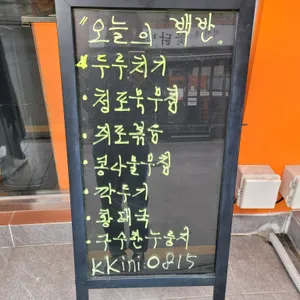 "오늘의 백반"
* 두루치기
· 청포묵무침
· 최로볶음
· 콩나물무침
· 깍두기
· 황태국
· 구수한누룽지
KKini 0815